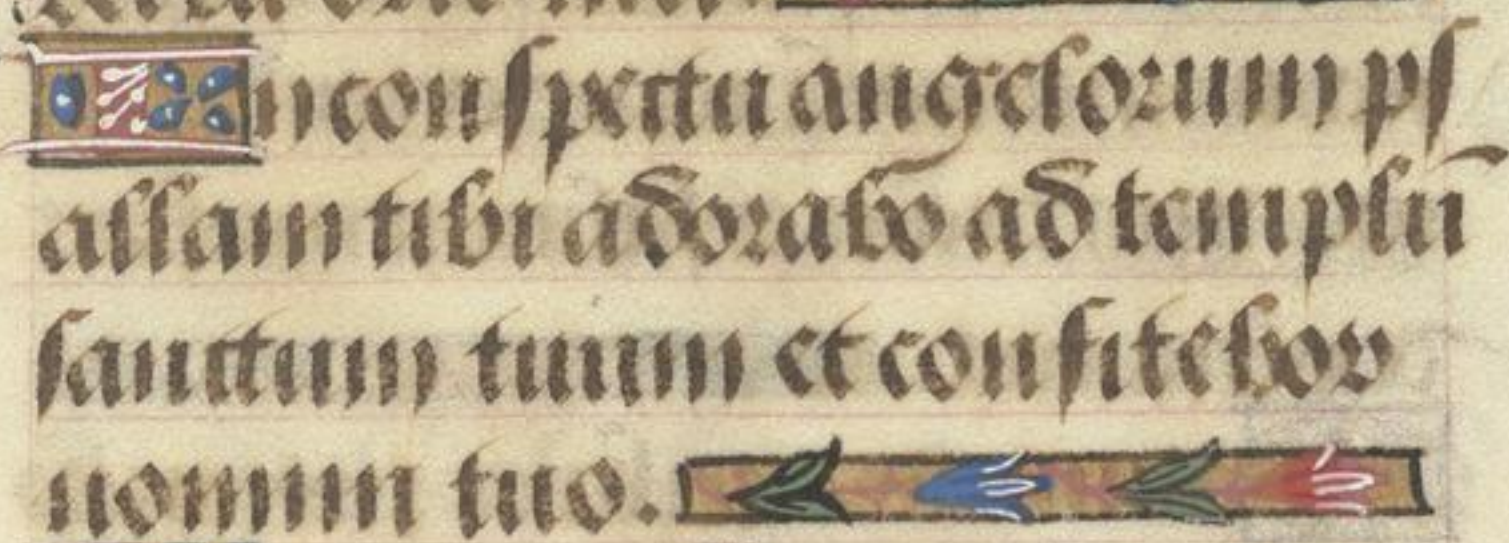 In conspectu angelorum ps
allam tibi adorabo ad templū
sanctum tuum et confitebor
nomini tuo.